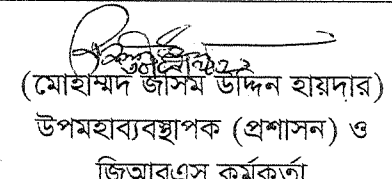 (মোহাম্মদ জসিম উদ্দিন হায়দার)
উপমহাব্যবস্থাপক (প্রশাসন) ও
জিআরএস কর্মকর্তা